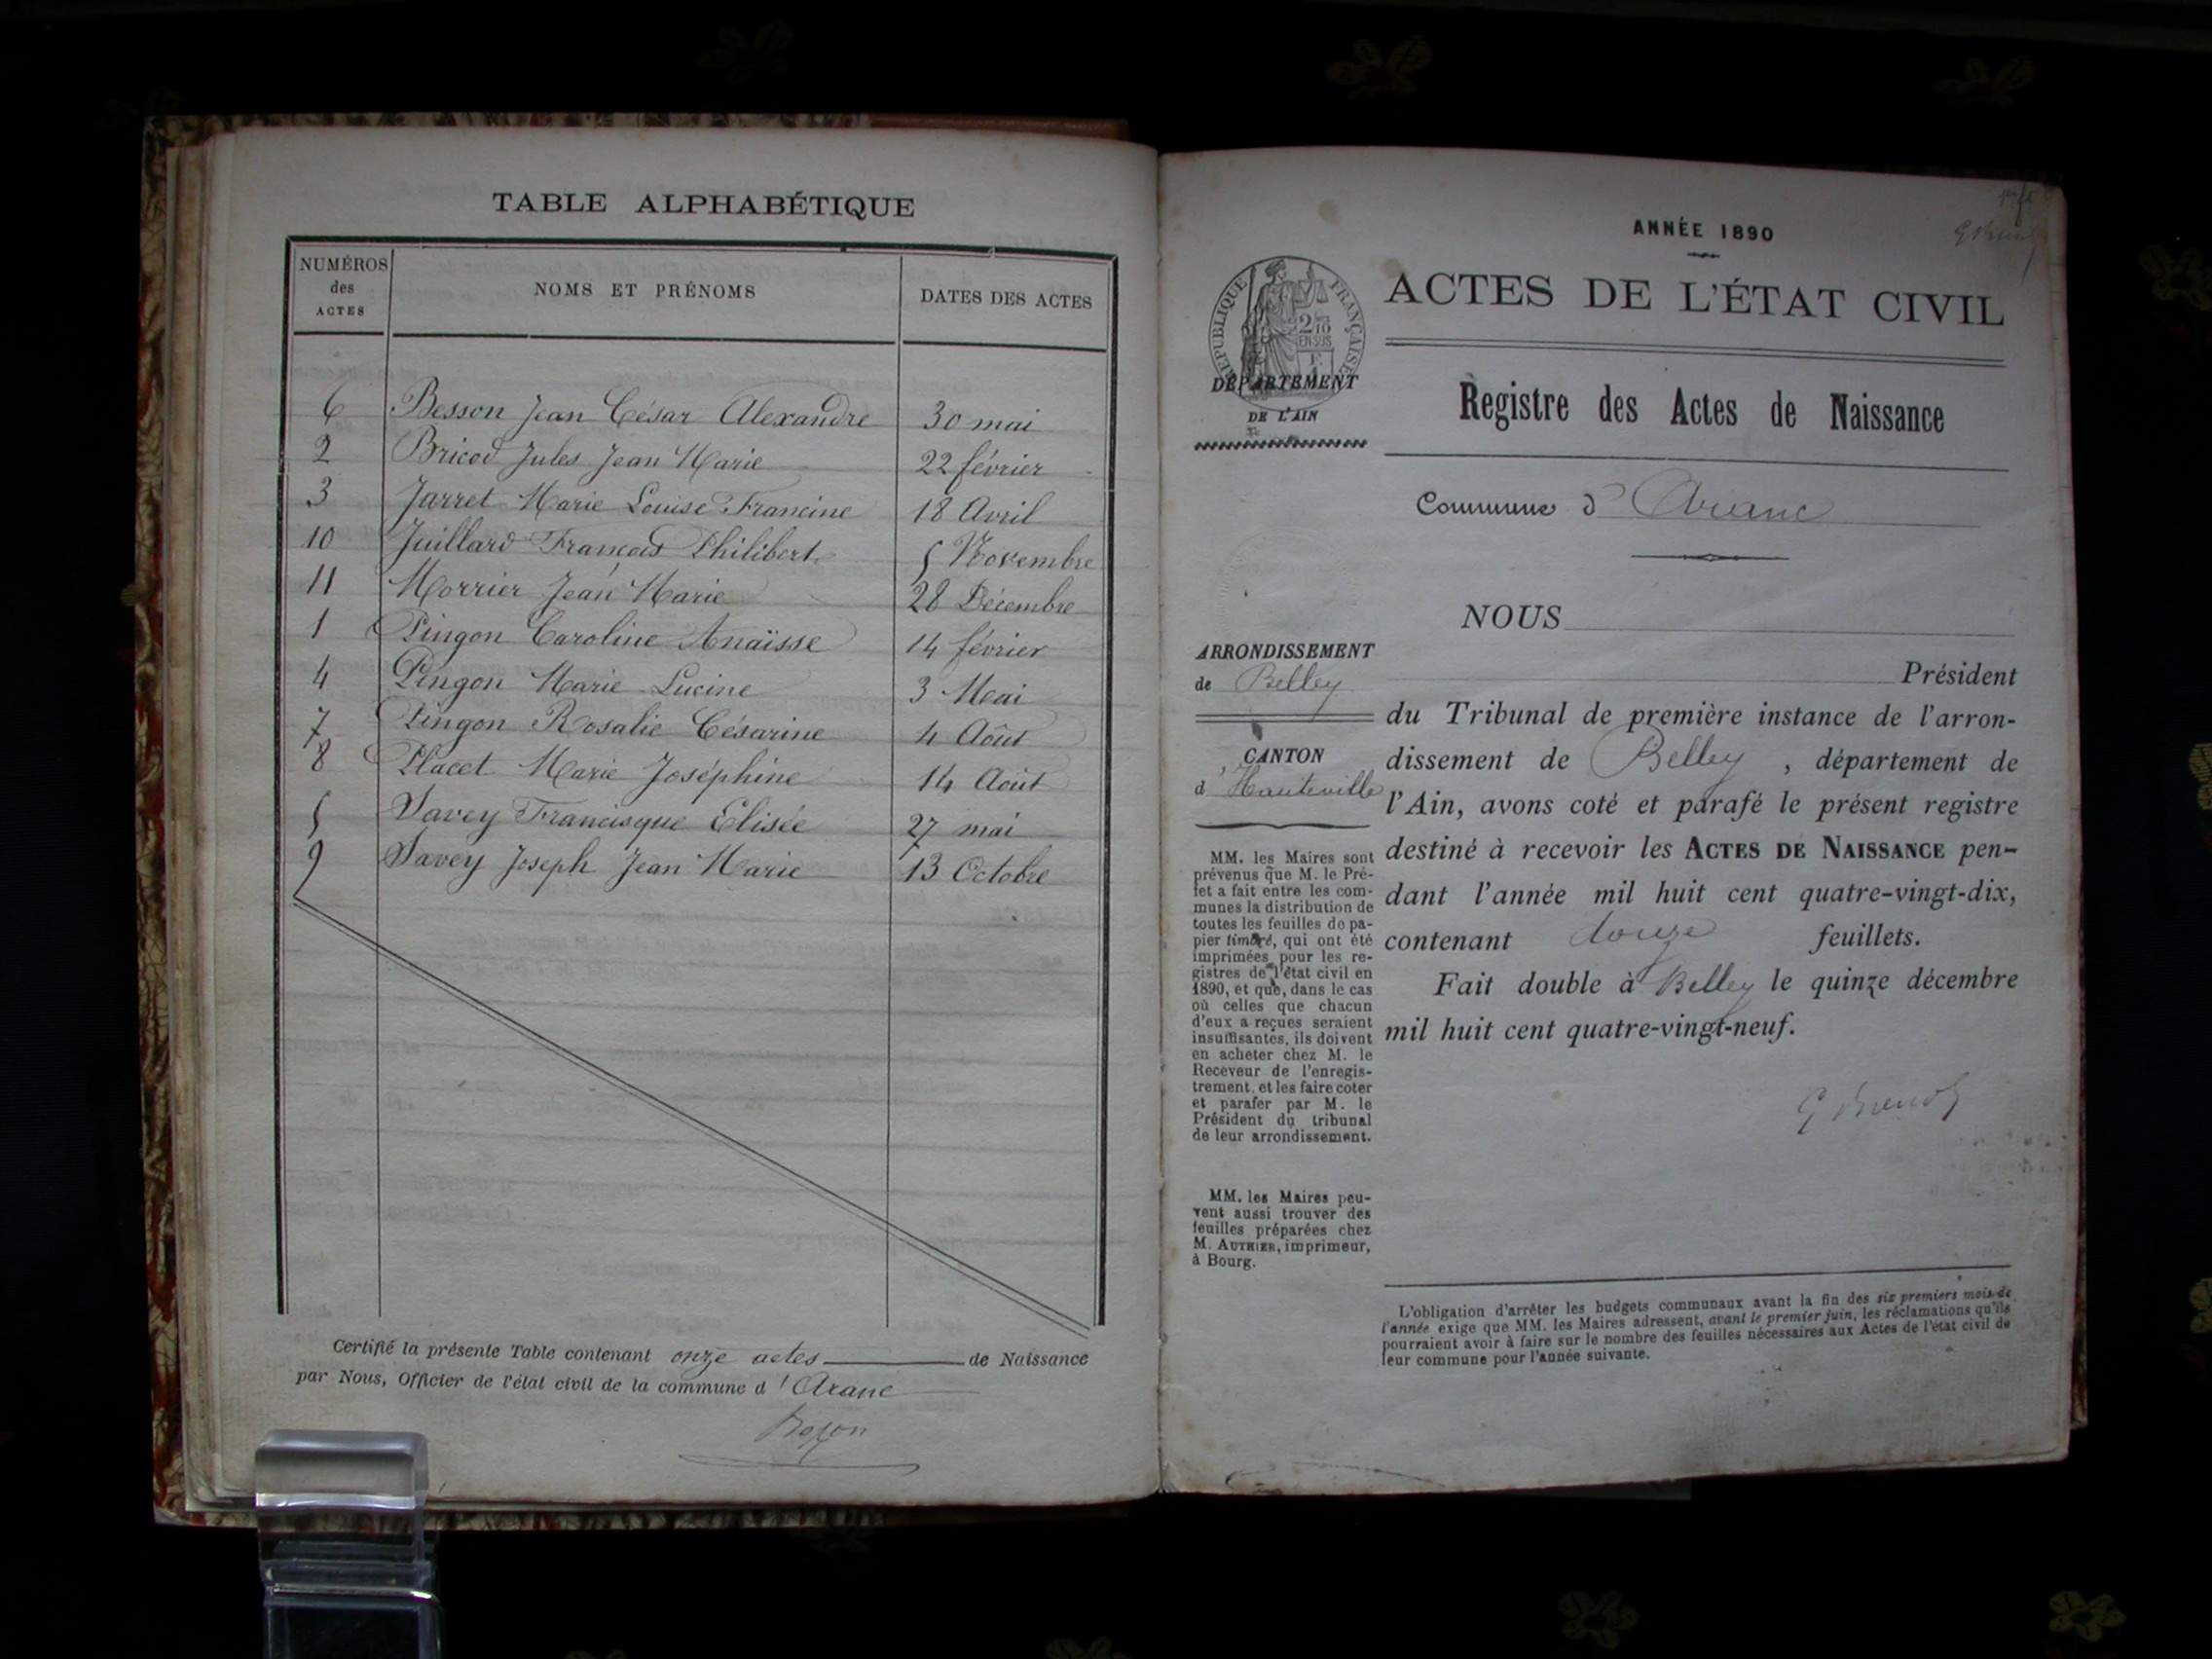 TABLE ALPHABÉTIQUE
NUMÉROS des ACTES NOMS ET PRÉNOMS DATES DES ACTES
6 Besson Jean César Alexandre 30 mai
2 Bricod Jules Jean Marie 22 février
3 Jarret Marie Louise Francine 18 Avril
10 Juillard François Philibert 5 Novembre
11 Morrier Jean Marie 28 Décembre
1 Pingon Caroline Anaïsse 14 février
4 Pingon Marie Lucine 3 Mai
7 Pingon Rosalie Césarine 4 Août
8 Placet Marie Joséphine 14 Août
5 Savey Francisque Elisée 27 mai
9 Savey Joseph Jean Marie 13 Octobre
Certifié la présente Table contenant onze actes de Naissance
par Nous, Officier de l'état civil de la commune d'Aranc
Bozon
ANNÉE 1890
RÉPUBLIQUE FRANÇAISE
2/10 EN SUS
ACTES DE L'ÉTAT CIVIL
DÉPARTEMENT
DE L'AIN
Registre des Actes de Naissance
Commune d'Aranc
NOUS
Président
du Tribunal de première instance de l'arron-
dissement de Belley, département de
l'Ain, avons coté et parafé le présent registre
destiné à recevoir les ACTES DE NAISSANCE pen-
dant l'année mil huit cent quatre-vingt-dix,
contenant douze feuillets.
Fait double à Belley le quinze décembre
mil huit cent quatre-vingt-neuf.
ARRONDISSEMENT
de Belley
CANTON
d'Hauteville
MM. les Maires sont
prévenus que M. le Pré-
fet a fait entre les com-
munes la distribution de
toutes les feuilles de pa-
pier timbré, qui ont été
imprimées pour les re-
gistres de l'état civil en
1890, et que, dans le cas
où celles que chacun
d'eux a reçues seraient
insuffisantes, ils doivent
en acheter chez M. le
Receveur de l'enregis-
trement, et les faire coter
et parafer par M. le
Président du tribunal
de leur arrondissement.
MM. les Maires peu-
vent aussi trouver des
feuilles préparées chez
M. AUTHIER, imprimeur,
à Bourg.
L'obligation d'arrêter les budgets communaux avant la fin des six premiers mois de
l'année exige que MM. les Maires adressent, avant le premier juin, les réclamations qu'ils
pourraient avoir à faire sur le nombre des feuilles nécessaires aux Actes de l'état civil de
leur commune pour l'année suivante.